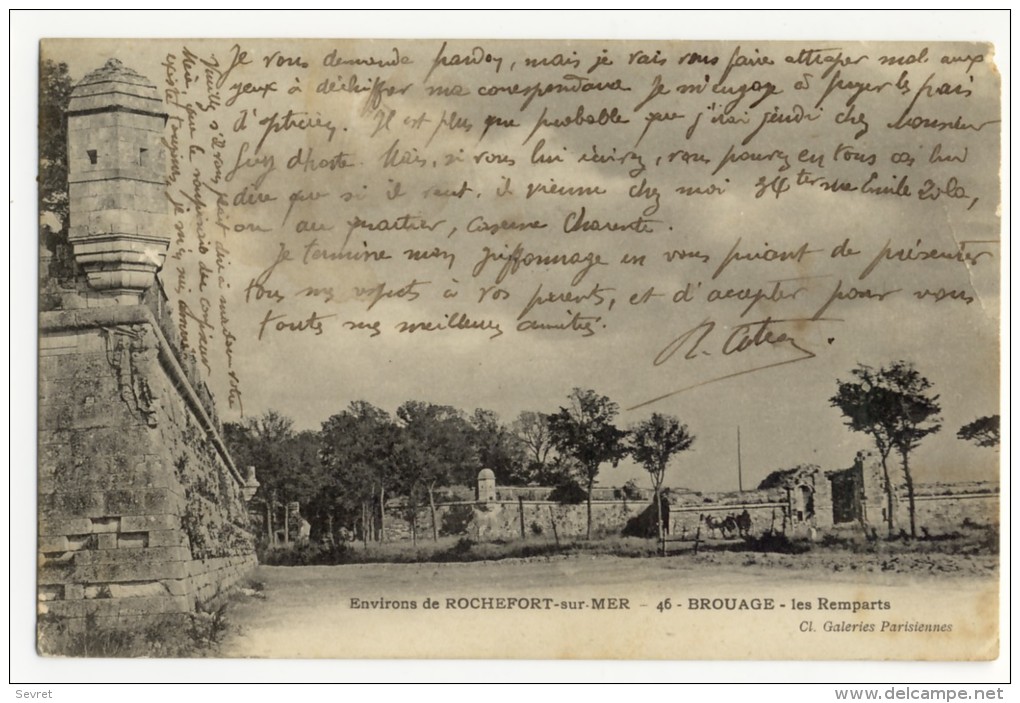 Je vous demande pardon, mais je vais vous faire attraper mal aux
yeux à déchiffrer ma correspondance. Je m'engage à payer les frais
d'opticien. Il est plus que probable que j'irai jeudi chez Monsieur
Guy d'hoste. Mais, si vous lui écrivez, vous pourrez en tous cas lui
dire que si il veut, il vienne chez moi 34 ter rue Emile Zola,
ou au quartier, caserne Charente.
Je termine mon griffonnage en vous priant de présenter
tous mes respects à vos parents, et d'accepter pour vous
toutes mes meilleures amitiés.
R.
Veuillez s'il vous plait dire à madame votre
Mère que le souvenir du
existe toujours, je m'en suis
Environs de ROCHEFORT-sur-MER - 46 - BROUAGE - les Remparts
Cl. Galeries Parisiennes
Sevret
www.delcampe.net